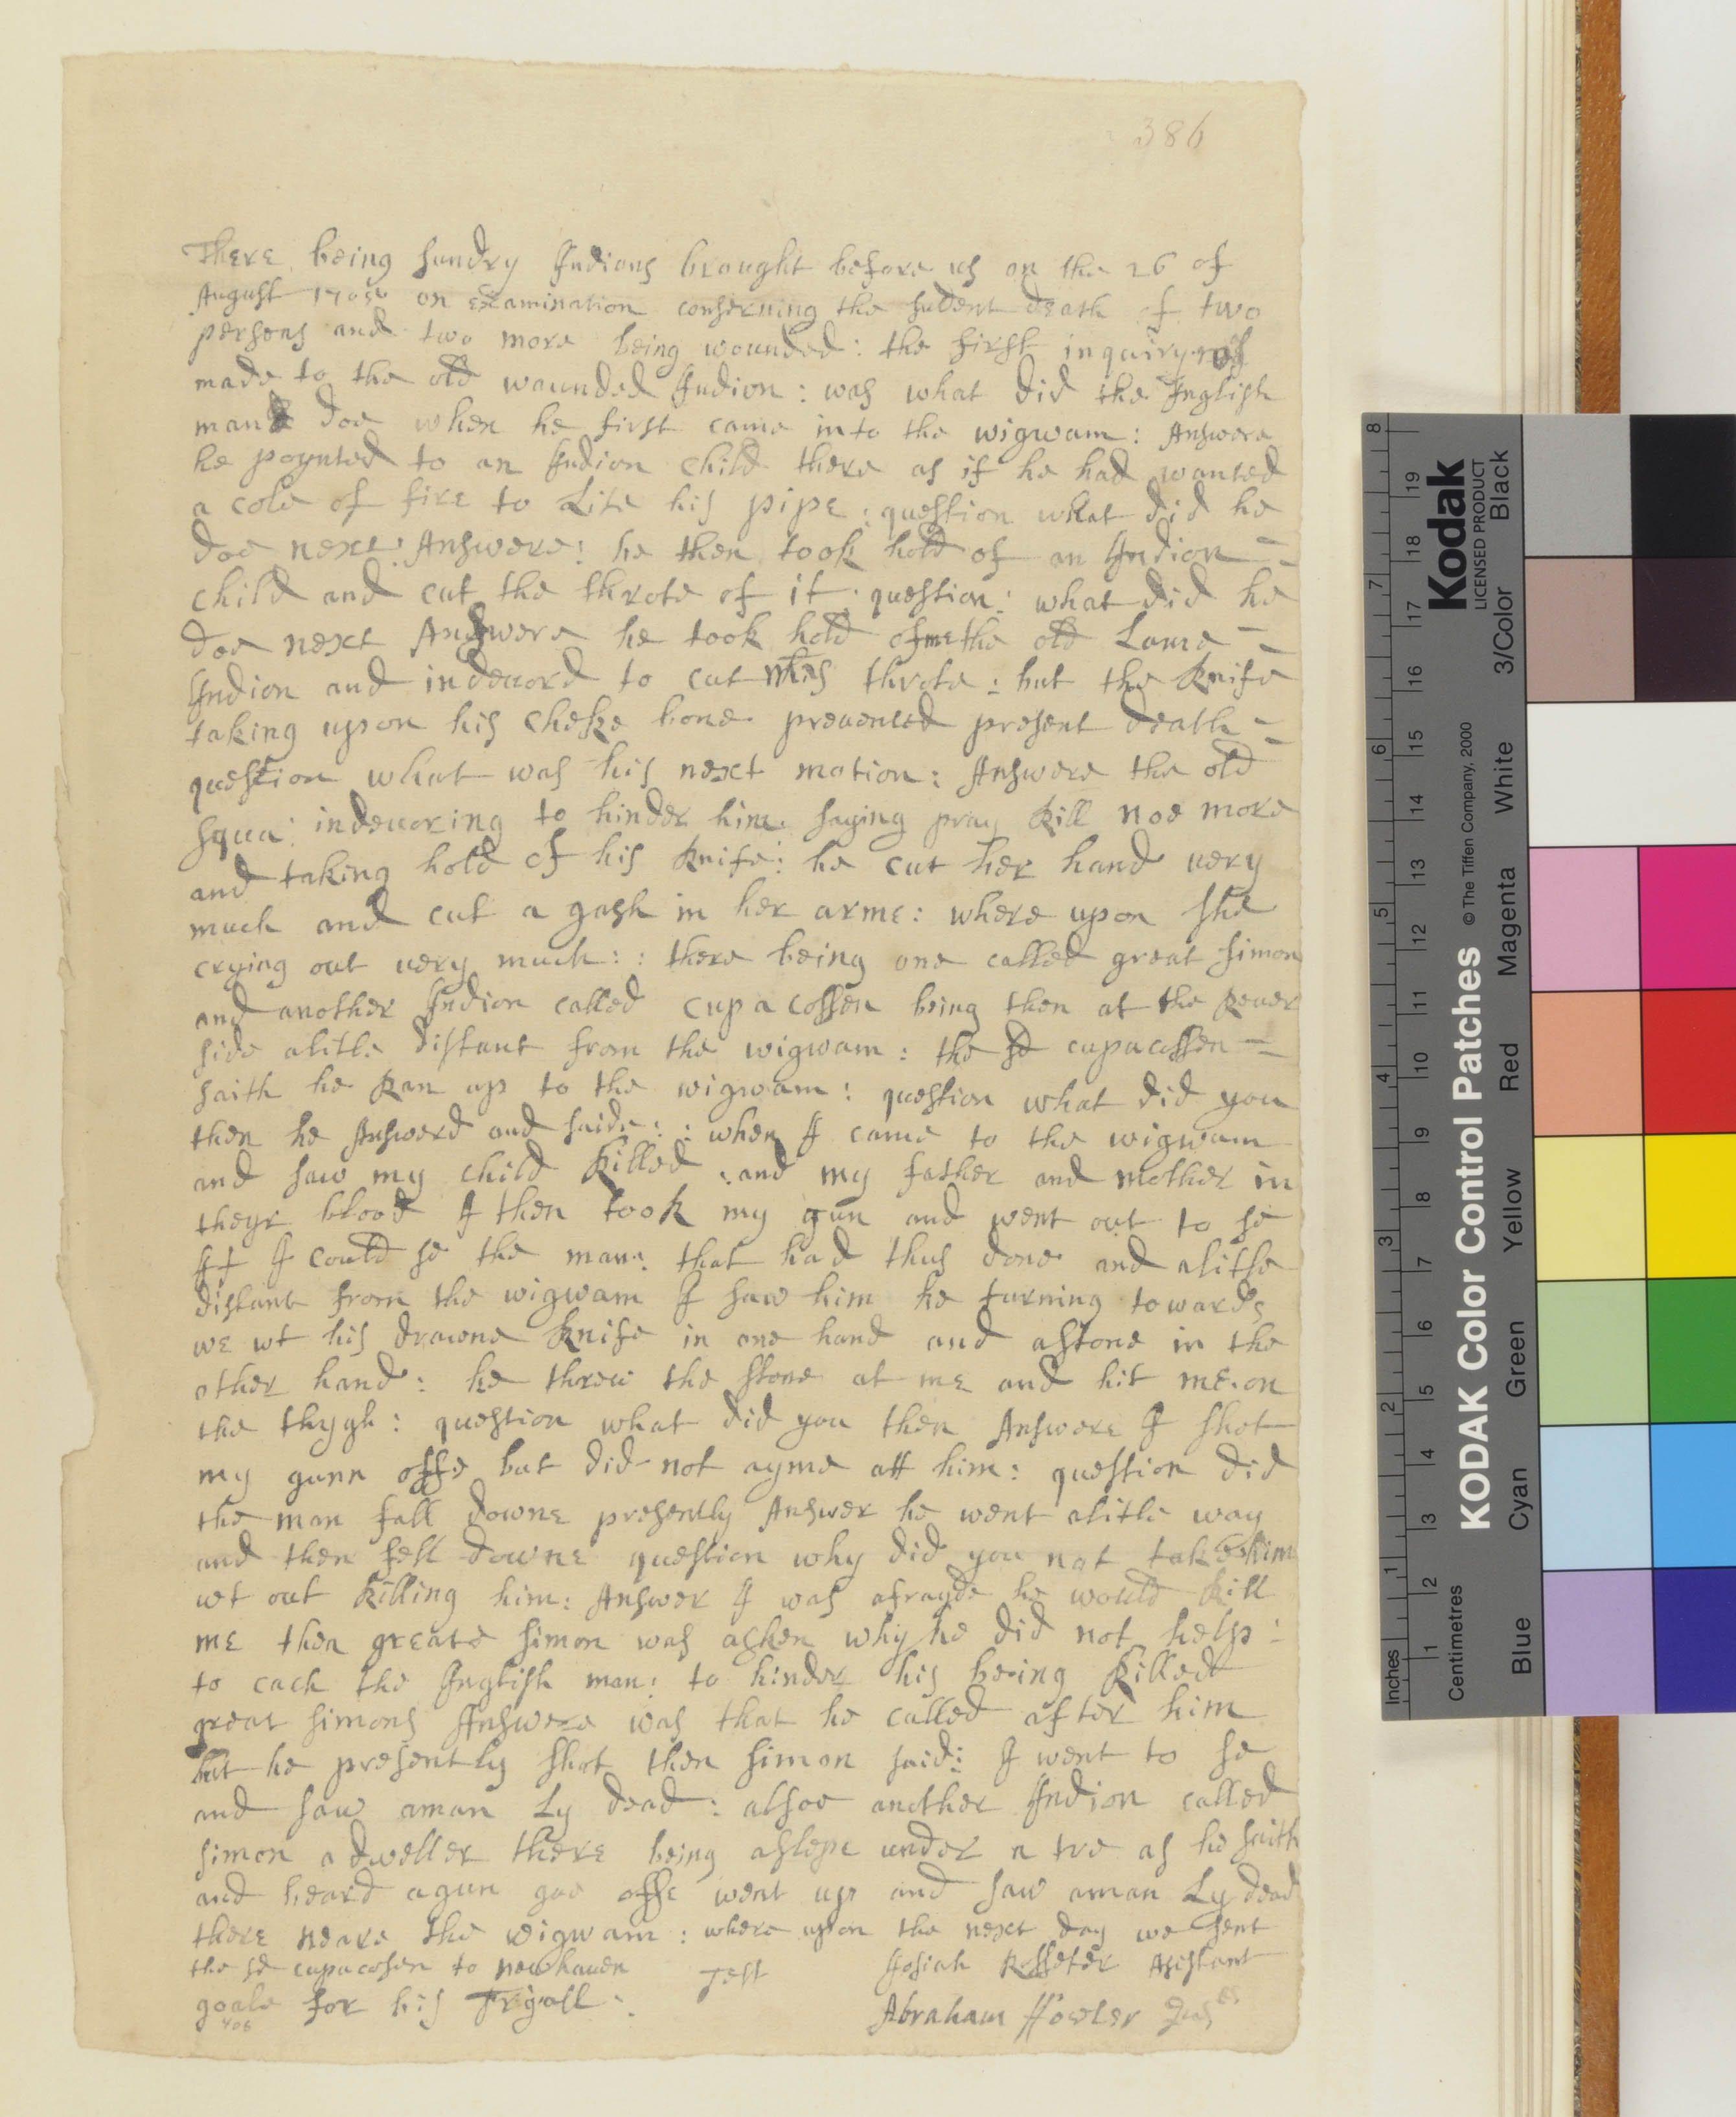 386
There being sundry Indions brought before us on the 26 of
August 1705 on examination conserning the sudent death of two
persons and two more being wounded: the first inquiry
made to the old waunded Indion: was what did the Inglish
man doe when he first came into the wigwam: Answere
he poynted to an Indion child there as if he had wanted
a cole of fire to Lite his pipe: question what did he
doe next: Answere: he then took hold of an Indion =
child and cut the throte of it: question: what did he
doe next Answere he took hold of the old Lame =
Indion and indeuord to cut his throte: but the knife
taking upon his cheke bone preuented present death =
question what was his next motion: Answere the old
squa: indeuoring to hinder him saying pray kill noe more
and taking hold of his knife: he cut her hand uery
much and cut a gash in her arme: where upon she
crying out uery much:: there being one called great simon
and another Indion called cupacossen being then at the Reuer
side alitle distant from the wigwam: the sd cupacossen =
saith he Ran up to the wigwam: question what did you
then he Answerd and saide:: when I came to the wigwam
and saw my child killed: and my father and mother in
theyr blood I then took my gun and went out to se
If I could se the man: that had thus done and alitle
distant from the wigwam I saw him he turning towards
me wt his drawne knife in one hand and astone in the
other hand: he threw the stone at me and hit me on
the thygh: question what did you then Answere I shot
my gunn offe but did not ayme att him: question did
the man fall downe presently Answer he went alitle way
and then fell downe question why did you not take him
wt out killing him: Answer I was afrayde he would kill
me then greate simon was asken why he did not help:
to cach the Inglish man: to hinder his being killed
great simons Answere was that he called after him
but he presently shot then simon said: I went to se
and saw aman Ly dead: alsoe another Indion called
simon adweller there being aslepe under a tre as he saith
and heard agun goe offe went up and saw aman Ly dead
there neare the wigwam: where upon the next day we sent
the sd cupacosen to newhauen Test Josiah Rosseter Asistant
goale for his Tryall: Abraham ffowler Jus